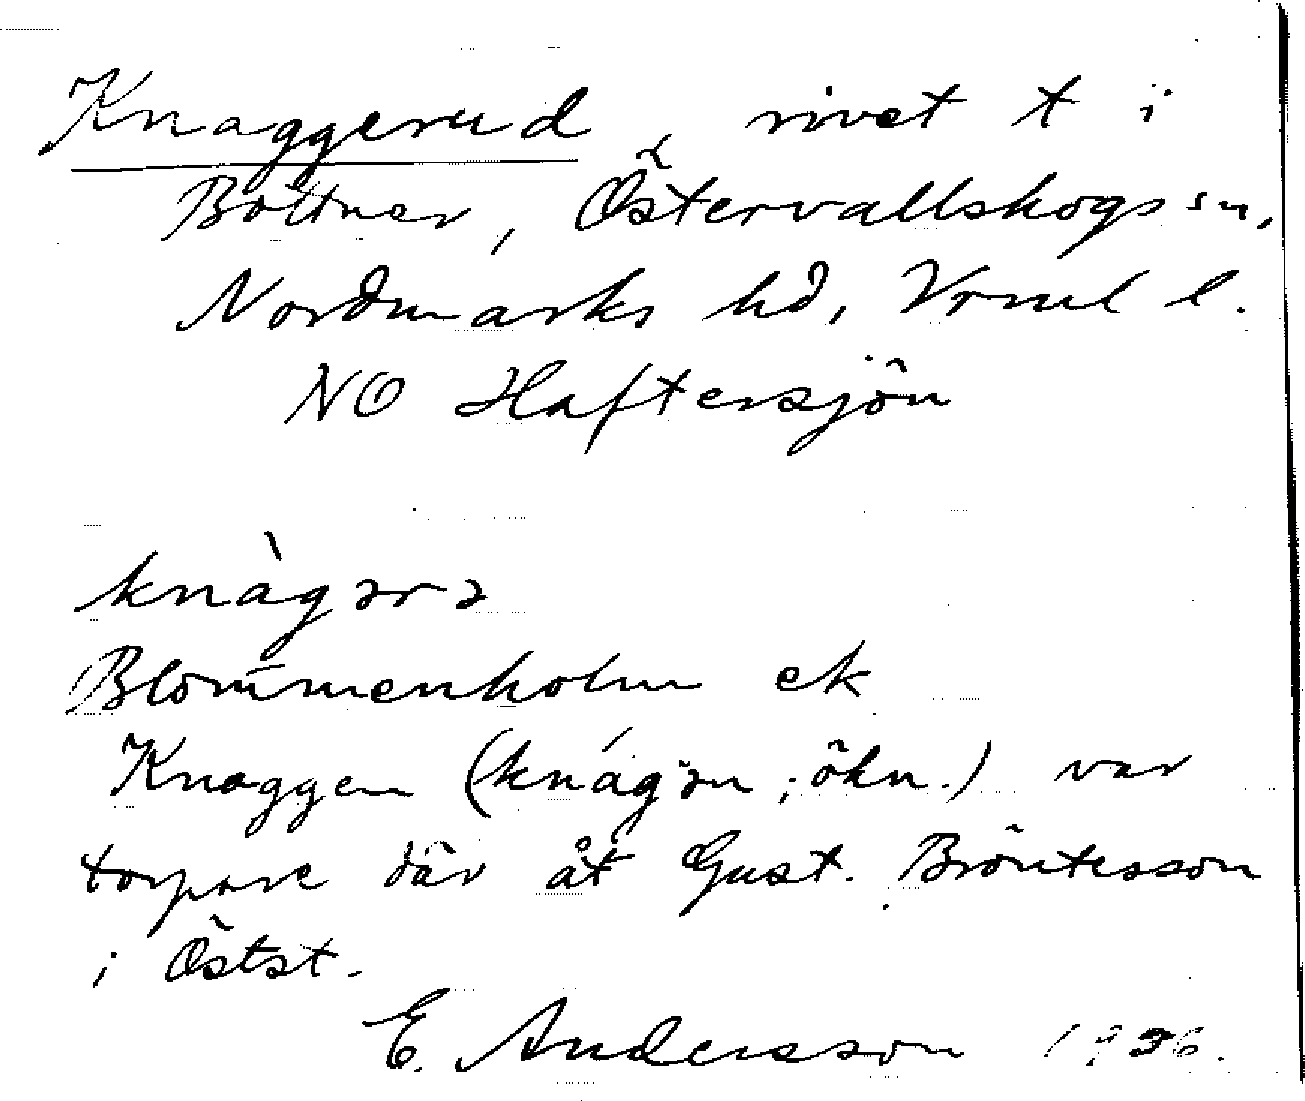 Knaggerud, rivet t i
Bottner, Östervallskogs sn,
Nordmarks hd, Vrml l.
NO Haftersjön
knàgərə
Blommenholm ek
Knaggen (knágən; ökn.) var
torpare där åt Gust. Bröntesson
i Östst.
E. Andersson 1936.